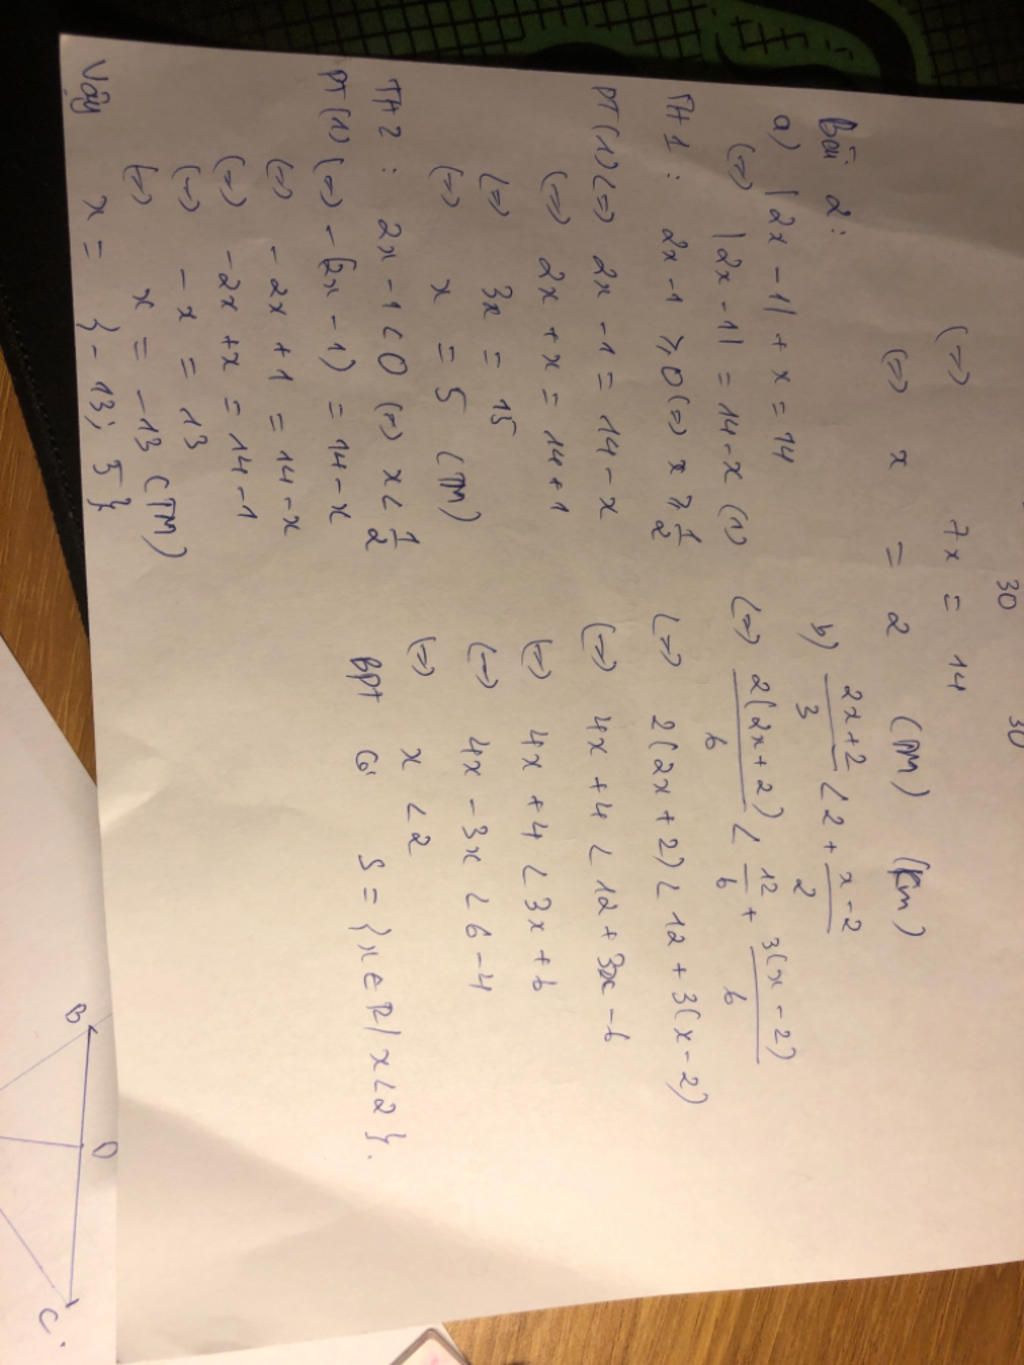 30 30
(=) 7x = 14
(=) x = 2 (TM) (km)
Bài 2:
a) |2x - 1| + x = 14
(=) |2x - 1| = 14 - x (1)
TH1: 2x - 1 ≥ 0 (=) x ≥ 1/2
PT(1) (=) 2x - 1 = 14 - x
(=) 2x + x = 14 + 1
(=) 3x = 15
(=) x = 5 (TM)
TH2: 2x - 1 < 0 (=) x < 1/2
PT(1) (=) - (2x - 1) = 14 - x
(=) - 2x + 1 = 14 - x
(=) - 2x + x = 14 - 1
(=) - x = 13
(=) x = -13 (TM)
Vậy x = {-13; 5}
b) (2x+2)/3 < 2 + (x-2)/2
(=) 2(2x+2)/6 < 12/6 + 3(x-2)/6
(=) 2(2x+2) < 12 + 3(x-2)
(=) 4x + 4 < 12 + 3x - 6
(=) 4x + 4 < 3x + 6
(=) 4x - 3x < 6 - 4
(=) x < 2
BPT có S = {x ∈ R / x < 2}.
B D C